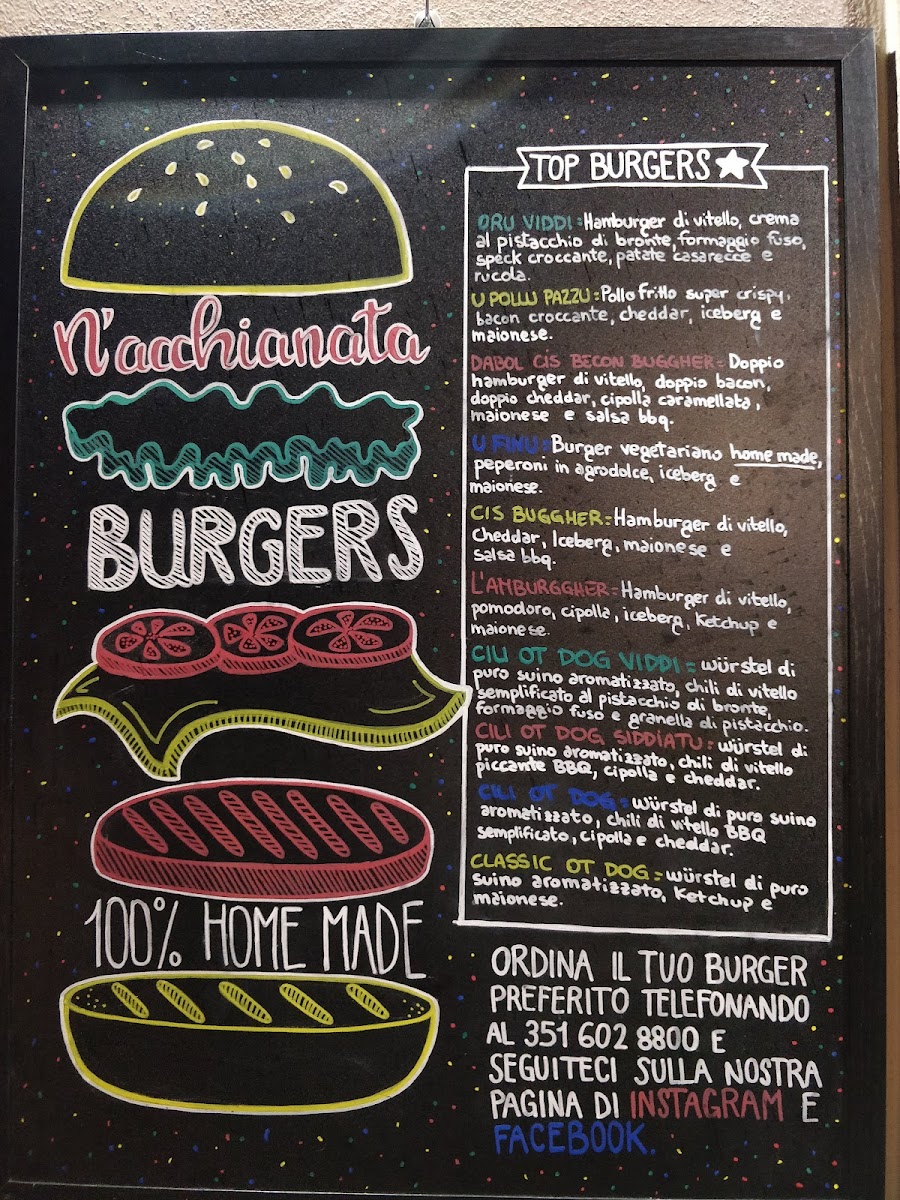 N'acchianata
BURGERS
100% HOME MADE
TOP BURGERS
ORU VIDDI: Hamburger di vitello, crema
al pistacchio di bronte, formaggio fuso,
speck croccante, patate casarecce e
rucola.
U POLLU PAZZU: Pollo fritto super crispy,
bacon croccante, cheddar, iceberg e
maionese.
DABOL CIS BECON BUGGHER: Doppio
hamburger di vitello, doppio bacon,
doppio cheddar, cipolla caramellata,
maionese e salsa bbq.
U FINU: Burger vegetariano home made,
peperoni in agrodolce, iceberg e
maionese.
CIS BUGGHER: Hamburger di vitello,
Cheddar, Iceberg, maionese e
salsa bbq.
L'AMBURGGHER: Hamburger di vitello,
pomodoro, cipolla, iceberg, Ketchup e
maionese.
CILI OT DOG VIDDI: würstel di
puro suino aromatizzato, chili di vitello
semplificato al pistacchio di bronte,
formaggio fuso e granella di pistacchio.
CILI OT DOG SIDDIATU: würstel di
puro suino aromatizzato, chili di vitello
piccante BBQ, cipolla e cheddar.
CILI OT DOG: würstel di puro suino
aromatizzato, chili di vitello BBQ
semplificato, cipolla e cheddar.
CLASSIC OT DOG: würstel di puro
suino aromatizzato, Ketchup e
maionese.
ORDINA IL TUO BURGER
PREFERITO TELEFONANDO
AL 351 602 8800 E
SEGUITECI SULLA NOSTRA
PAGINA DI INSTAGRAM E
FACEBOOK.